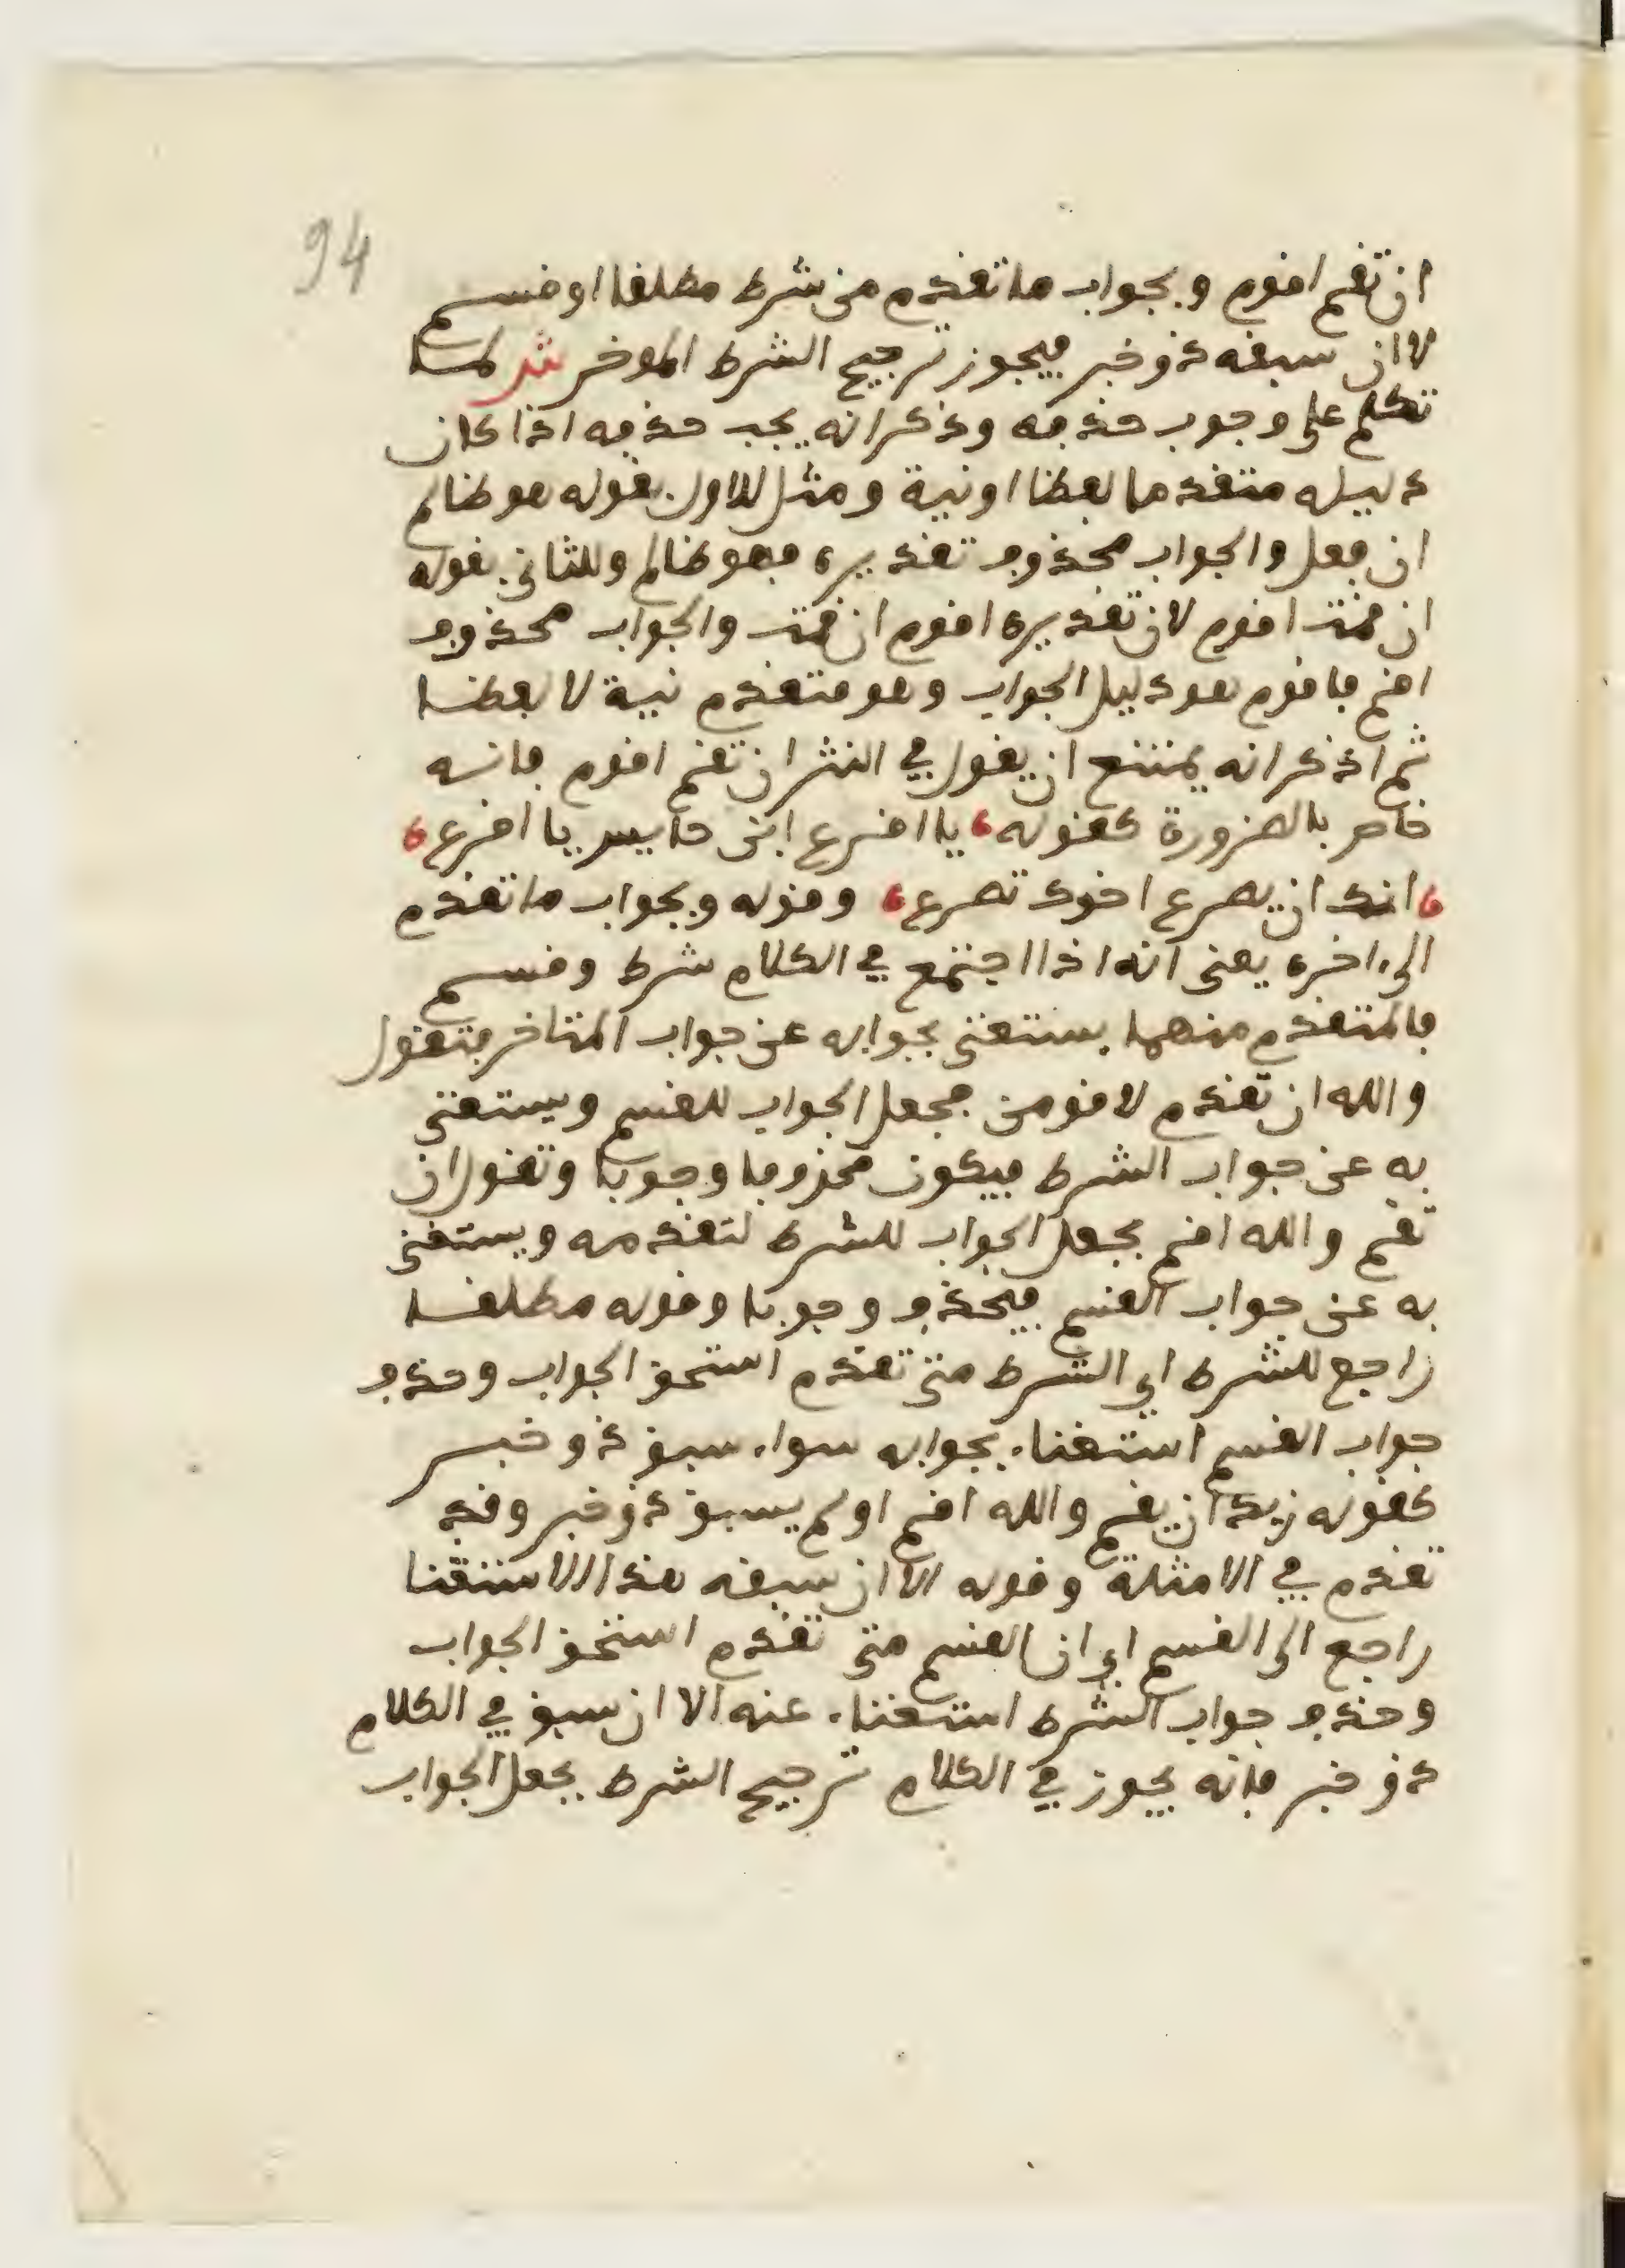 94
ان تقم اقوم وبجواب ما تقدم من شرط مطلقا او قسم
لا ان سبقه ذو خبر فيجوز ترجيح الشرط الموخر ش لما
تكلم على وجوب حذفه وذكر انه يجب حذفه اذا كان
دليله متقدما لفظا او نية ومثل للاول بقوله هو ظالم
ان فعل والجواب محذوف تقديره فهو ظالم وللثاني بقوله
ان قمت اقوم لان تقديره اقوم ان قمت والجواب محذوف
اقم فاقوم هو دليل الجواب وهو متقدم نية لا لفظا
ثم اذ ذكر انه يمتنع ان يقول في النثر ان تقم اقوم فانه
خاص بالضرورة كقوله يا اقرع ابن حابس يا اقرع
انك ان يصرع اخوك تصرع وقوله وبجواب ما تقدم
الى اخره يعني انه اذا اجتمع في الكلام شرط وقسم
فالمتقدم منهما يستغنى بجوابه عن جواب المتاخر فتقول
والله ان تقدم لاقومن فجعل الجواب للقسم ويستغنى
به عن جواب الشرط فيكون محذوفا وجوبا وتقول ان
تقم والله اقم بجعل الجواب للشرط لتقدمه ويستغنى
به عن جواب القسم فيحذف وجوبا وقوله مطلقا
راجع للشرط اي الشرط متى تقدم استحق الجواب وحذف
جواب القسم استغناء بجوابه سواء سبق ذو خبر
كقوله زيد ان يقم والله اقم او لم يسبق ذو خبر وقد
تقدم في الامثلة وقوله الا ان سبقه هذا الاستثنا
راجع الى القسم اي ان القسم متى تقدم استحق الجواب
وحذف جواب الشرط استغناء عنه الا ان سبق في الكلام
ذو خبر فانه يجوز في الكلام ترجيح الشرط بجعل الجواب